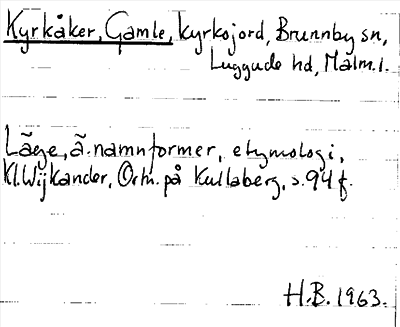 Kyrkåker, Gamle, kyrkojord, Brunnby sn,
Luggude hd, Malm.l.
Läge, ä. namnformer, etymologi,
Kl. Wijkander, Ortn. på Kullaberg, s. 94 f.
H.B. 1963.